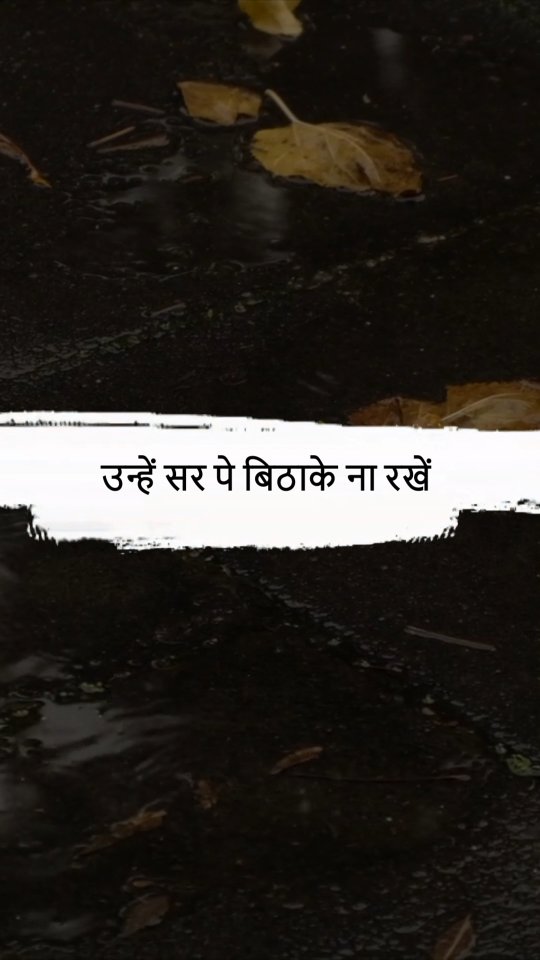 उन्हें सर पे बिठाके ना रखें